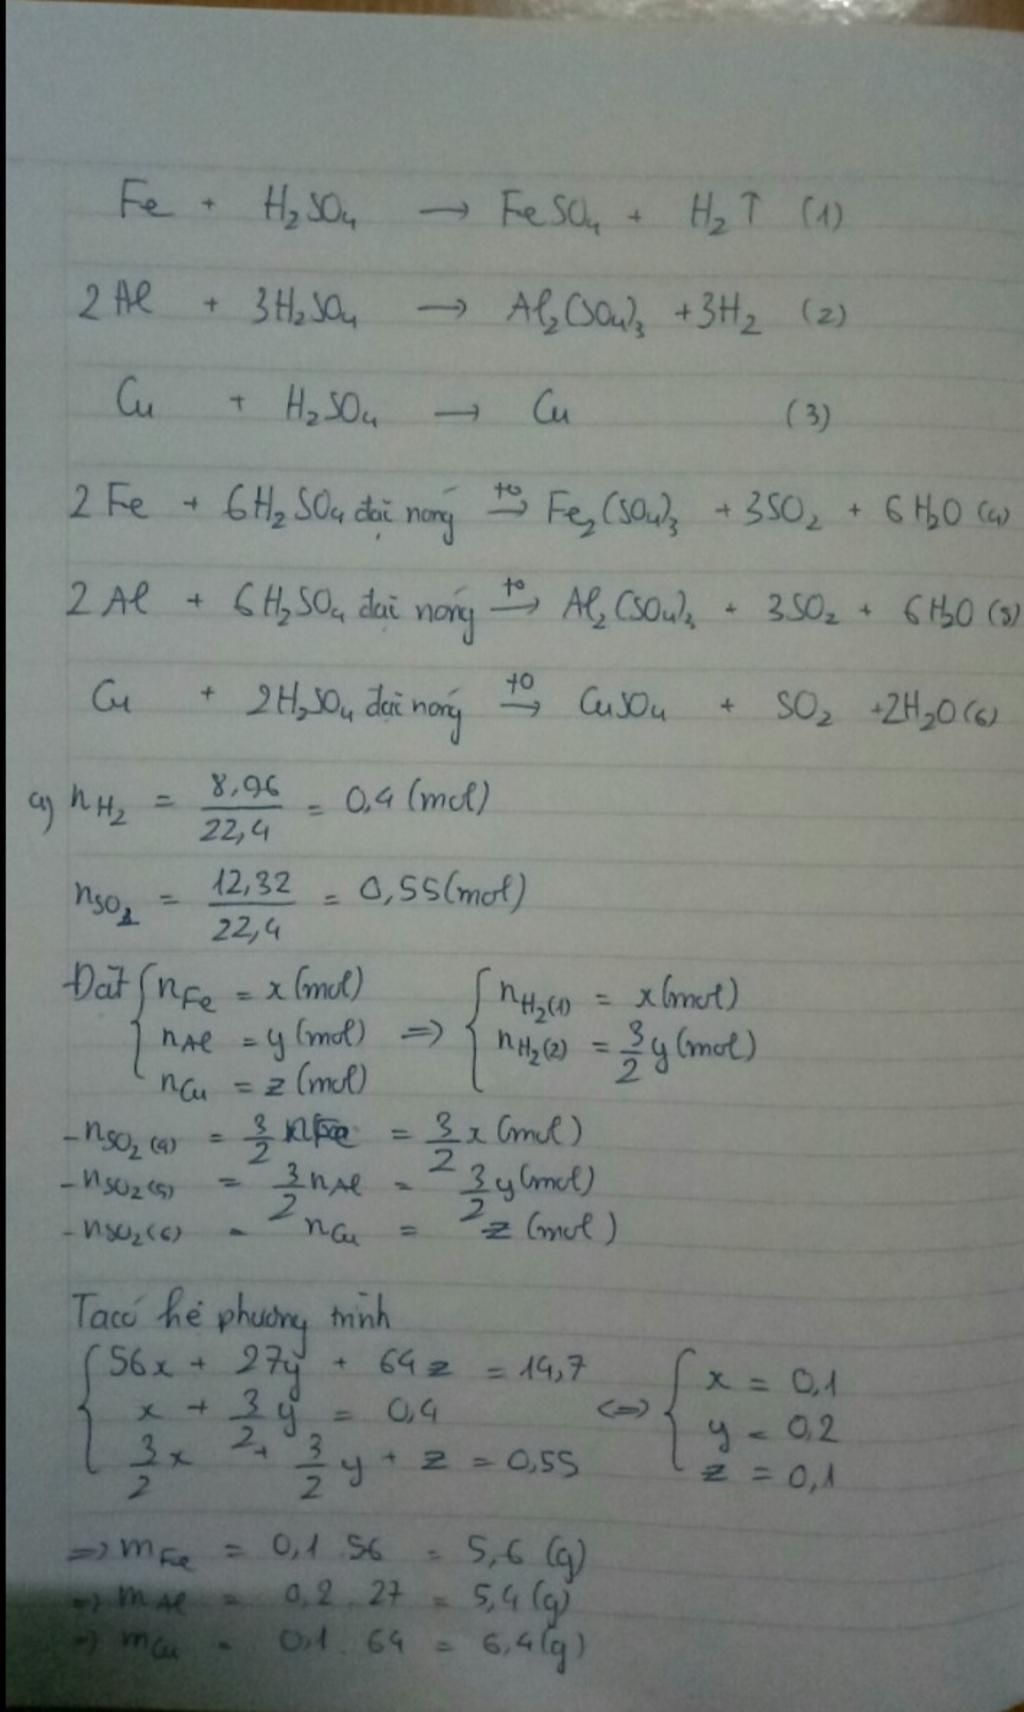 Fe + H₂SO₄ → FeSO₄ + H₂↑ (1)
2Al + 3H₂SO₄ → Al₂(SO₄)₃ + 3H₂ (2)
Cu + H₂SO₄ → Cu (3)
2Fe + 6H₂SO₄ đặc nóng →(t⁰) Fe₂(SO₄)₃ + 3SO₂ + 6H₂O (4)
2Al + 6H₂SO₄ đặc nóng →(t⁰) Al₂(SO₄)₃ + 3SO₂ + 6H₂O (5)
Cu + 2H₂SO₄ đặc nóng →(t⁰) CuSO₄ + SO₂ + 2H₂O (6)
a) n H₂ = 8,96/22,4 = 0,4 (mol)
n SO₂ = 12,32/22,4 = 0,55 (mol)
Đặt { n Fe = x (mol) { n H₂(1) = x (mol)
n Al = y (mol) => n H₂(2) = 3/2 y (mol)
n Cu = z (mol)
- n SO₂(4) = 3/2 n Fe = 3/2 x (mol)
- n SO₂(5) = 3/2 n Al = 3/2 y (mol)
- n SO₂(6) = n Cu = z (mol)
Ta có hệ phương trình
{ 56x + 27y + 64z = 14,7 { x = 0,1
x + 3/2 y = 0,4 <=> y = 0,2
3/2 x + 3/2 y + z = 0,55 z = 0,1
=> m Fe = 0,1 . 56 = 5,6 (g)
=> m Al = 0,2 . 27 = 5,4 (g)
=> m Cu = 0,1 . 64 = 6,4 (g)